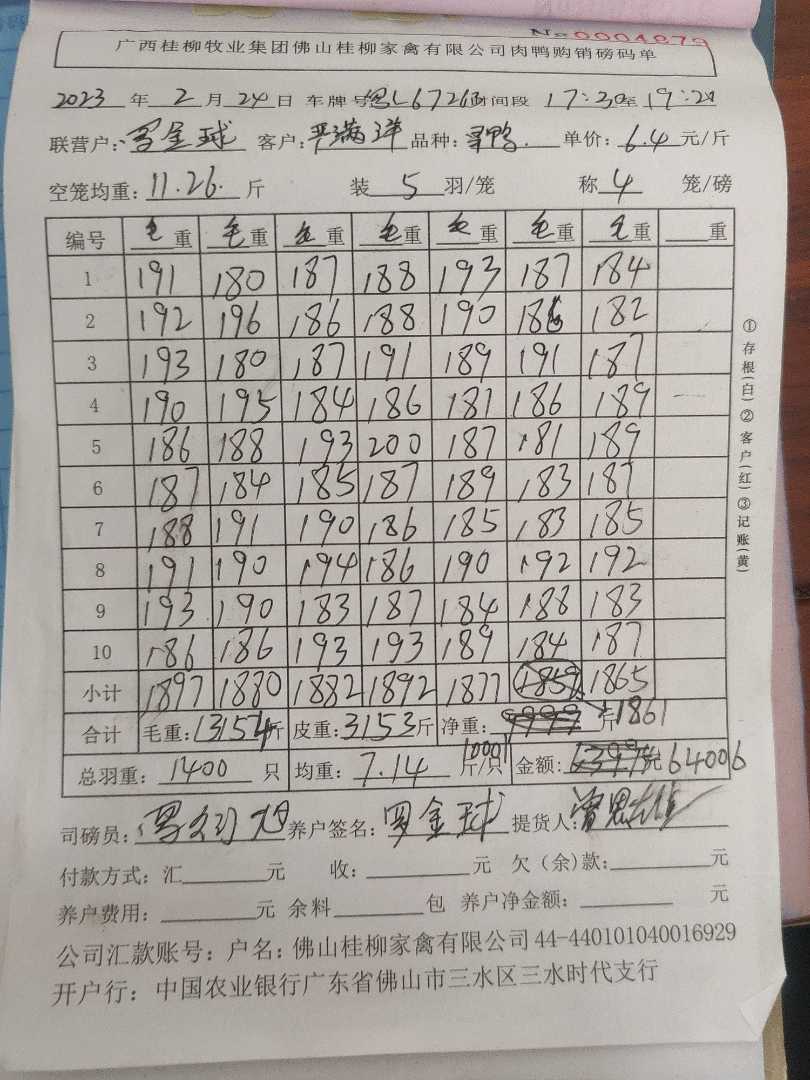 No 0004879
广西桂柳牧业集团佛山桂柳家禽有限公司肉鸭购销磅码单
2023 年 2 月 24 日 车牌号 粤L6726 时间段 17:30 至 19:20
联营户: 罗金球 客户: 严满洋 品种: 鸭 单价: 6.4 元/斤
空笼均重: 11.26 斤 装 5 羽/笼 称 4 笼/磅
编号 毛重 毛重 毛重 毛重 毛重 毛重 毛重 重
1 191 180 187 188 193 187 184
2 192 196 186 188 190 186 182
3 193 180 187 191 189 191 187
4 190 195 184 186 181 186 189
5 186 188 193 200 187 181 189
6 187 184 185 187 189 183 187
7 188 191 190 186 185 183 185
8 191 190 194 186 190 192 192
9 193 190 183 187 184 188 183
10 186 186 193 193 189 184 187
小计 1897 1880 1882 1892 1877 1859 1865
合计 毛重: 13154 斤 皮重: 3153 斤 净重: 9999 斤 1861
总羽重: 1400 只 均重: 7.14 斤/只 10001 金额: 元 64006
司磅员: 养户签名: 罗金球 提货人:
付款方式: 汇 元 收: 元 欠（余）款: 元
养户费用: 元 余料 包 养户净金额: 元
公司汇款账号: 户名: 佛山桂柳家禽有限公司 44-440101040016929
开户行: 中国农业银行广东省佛山市三水区三水时代支行
①存根(白)②客户(红)③记账(黄)